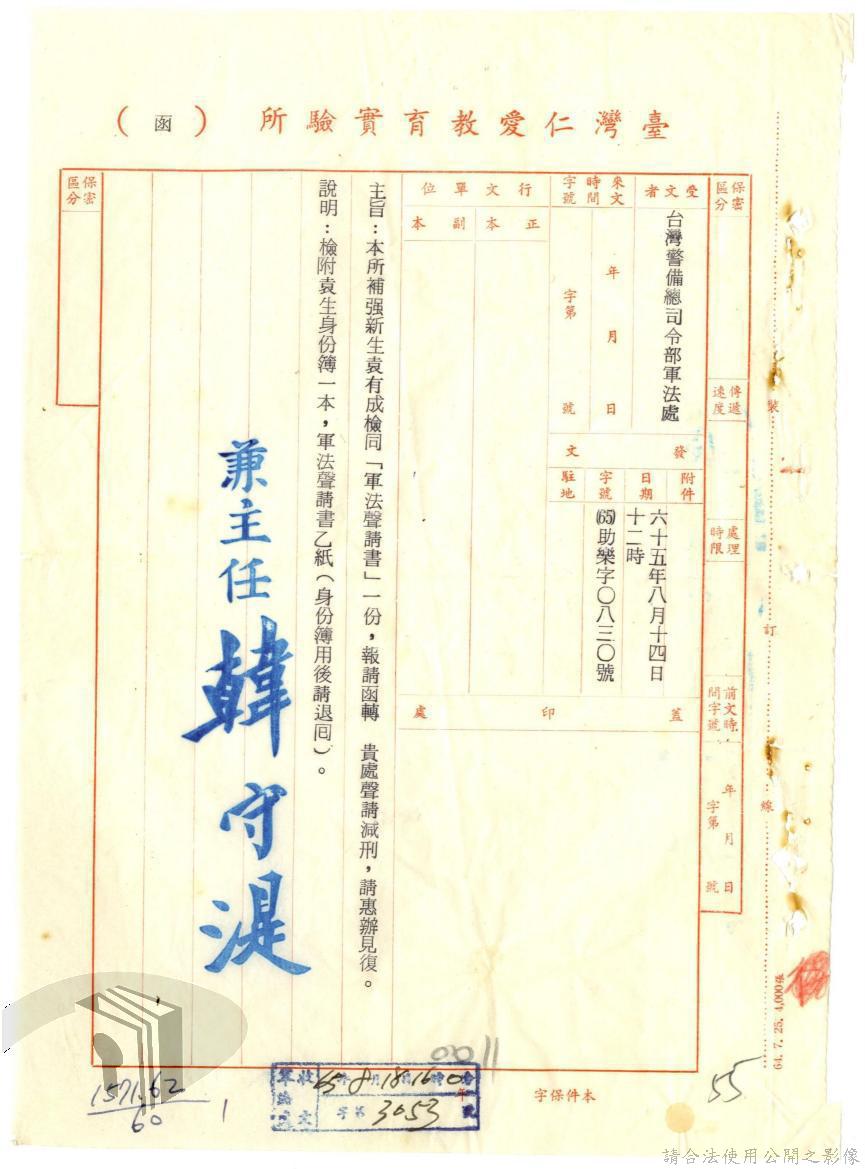 臺灣仁愛教育實驗所(函)
保密區分
傳遞速度
處理時限
前文時間字號
年月日
字第號
受文者
台灣警備總司令部軍法處
來文
時間
年月日
字號
字第號
發文
附件
日期
六十五年八月十四日
十二時
字號
(65)助樂字〇八三〇號
駐地
行文單位
正本
副本
蓋印處
主旨：本所補强新生袁有成檢同「軍法聲請書」一份，報請函轉 貴處聲請減刑，請惠辦見復。
說明：檢附袁生身份簿一本，軍法聲請書乙紙(身份簿用後請退囘)。
兼主任 韓守湜
保密區分
裝
訂
線
64. 7. 25. 4,000張
0011
收文
65 8 18 16
字第 3053 號
本件保字
55
1571.62
60
1
請合法使用公開之影像